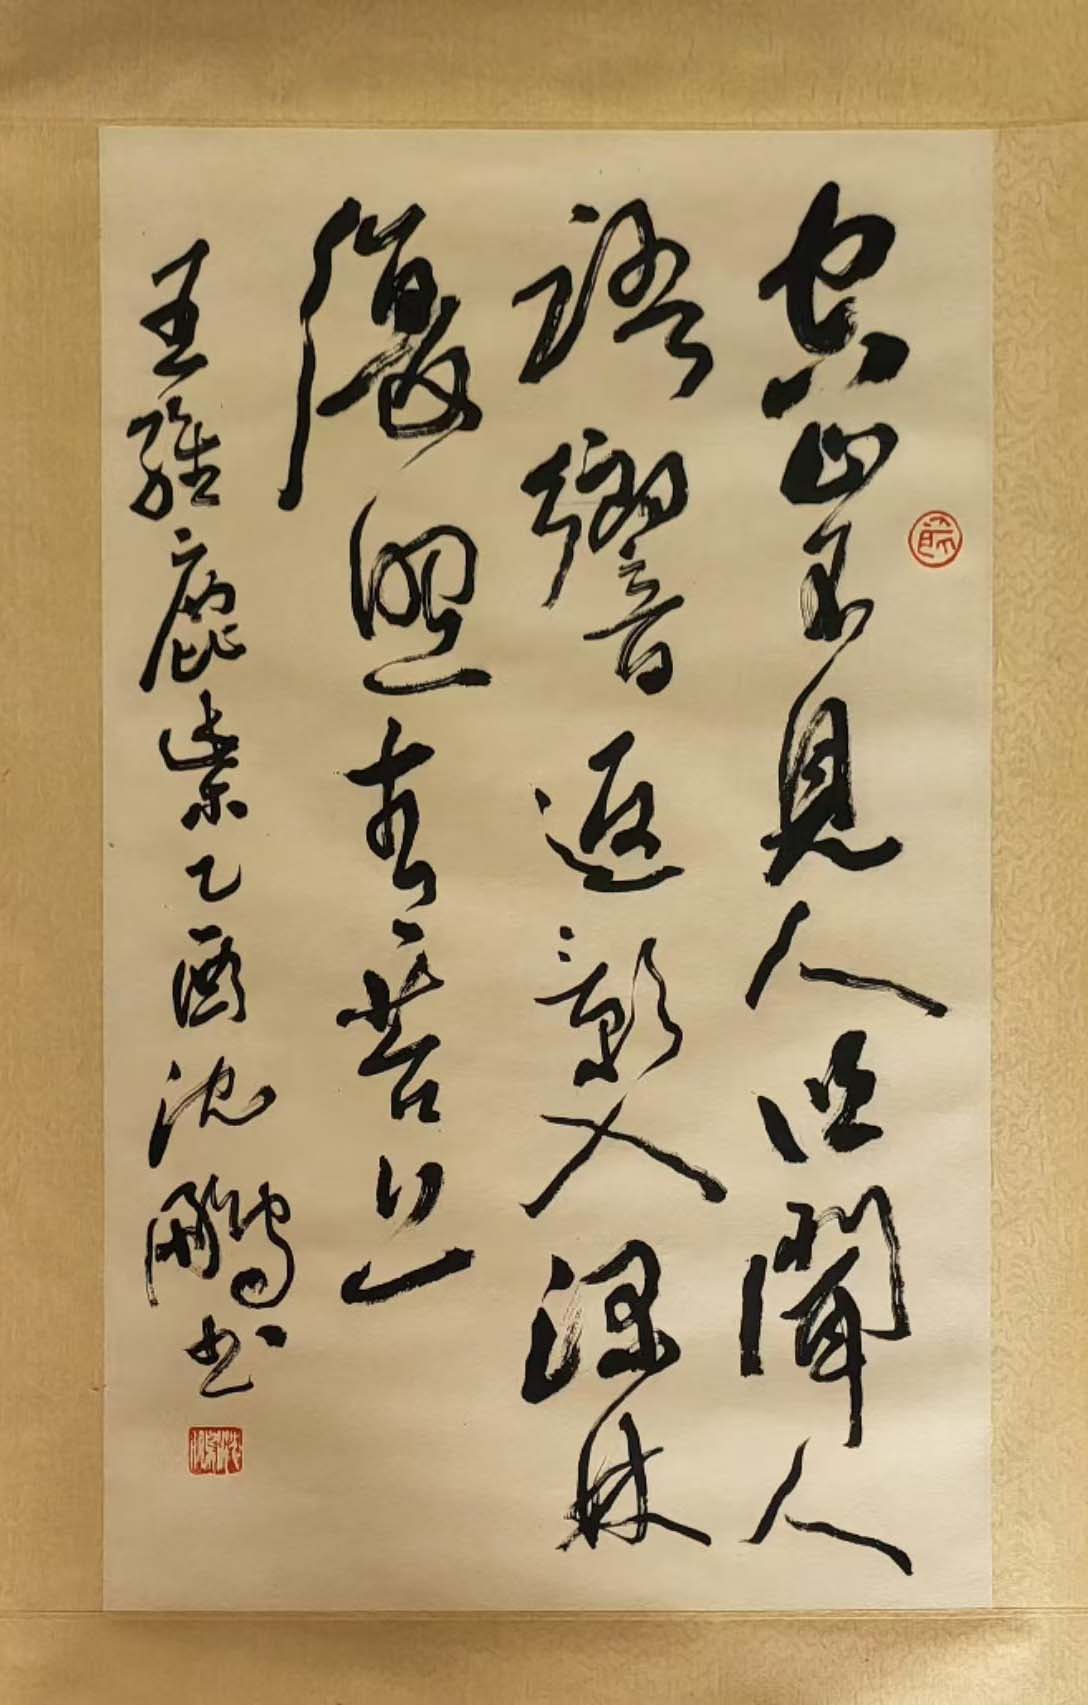 空山不見人但聞人
語響返影入深林
復照青苔上
王維鹿柴乙酉沈鵬书
沈鵬